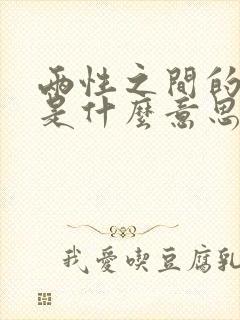 兩性之間的
是什麼意思
我愛喫豆腐乳